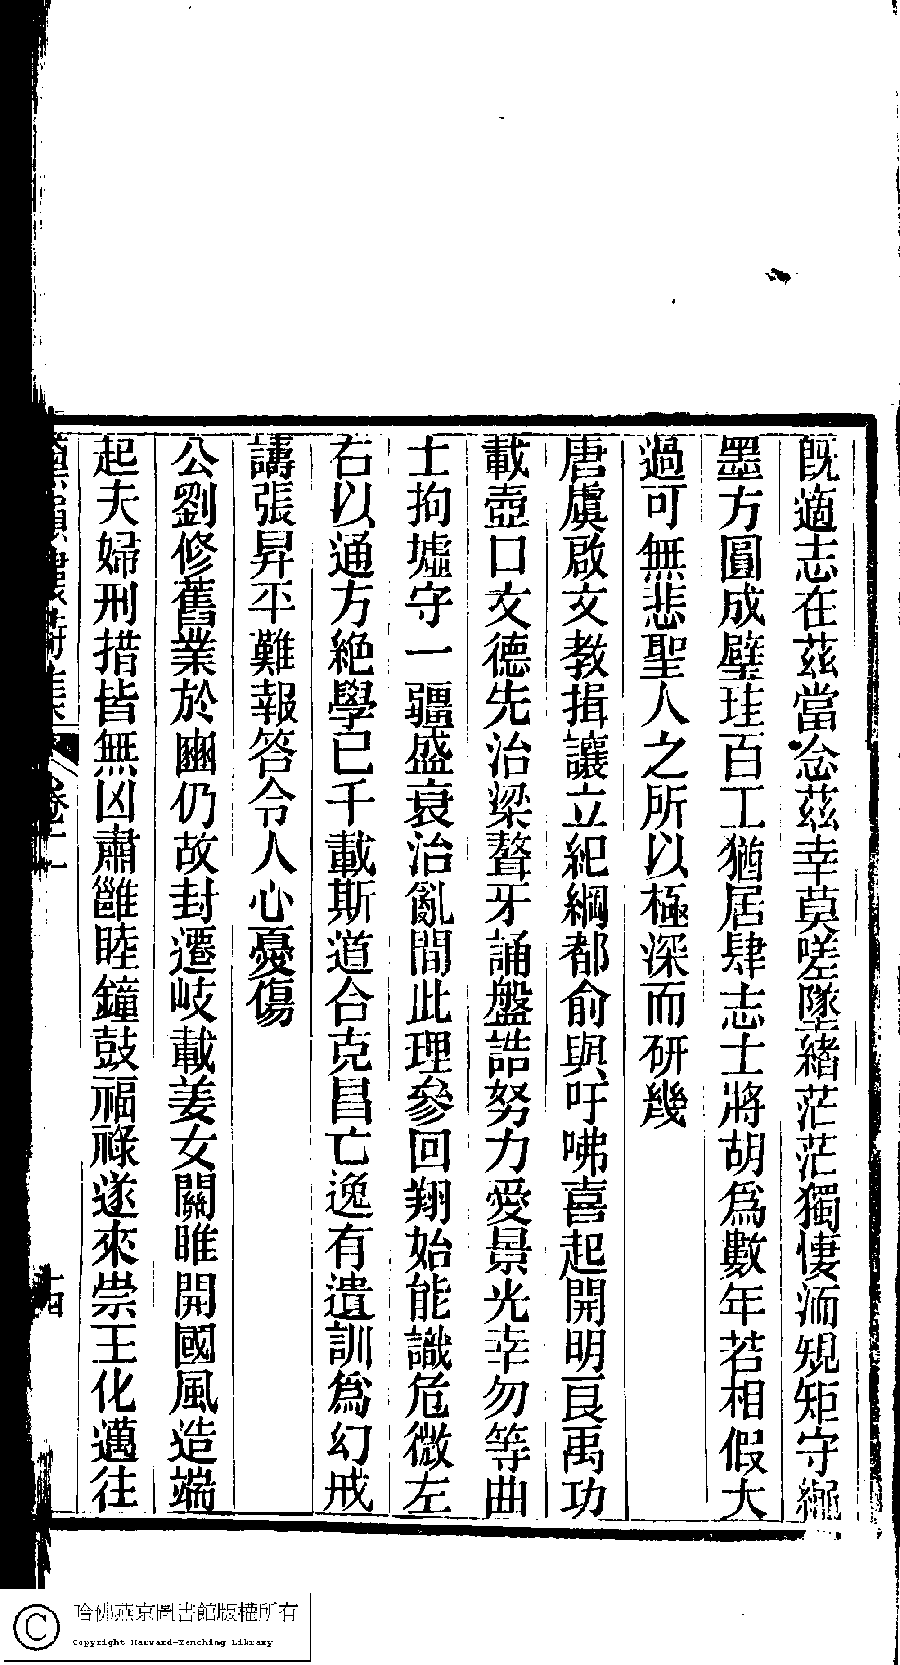 既適志在茲當念茲幸莫嗟墜緒茫茫獨悽洏規矩守繩
墨方圓成璧珪百工猶居肆志士將胡爲數年若相假大
過可無悲聖人之所以極深而研幾
唐虞啟文教揖讓立紀綱都俞與吁咈喜起開明良禹功
載壺口文德先治梁聱牙誦盤誥努力愛景光幸勿等曲
士拘墟守一疆盛衰治亂間此理參回翔始能識危微左
右以通方絶學已千載斯道合克昌亡逸有遺訓爲幻戒
譸張昇平難報答令人心憂傷
公劉修舊業於豳仍故封遷岐載姜女關睢開國風造端
起夫婦刑措皆無凶肅雝睦鐘鼓福祿遂來崇王化邁往
卷二
十四
哈佛燕京圖書館版權所有
Copyright Harvard-Yenching Library